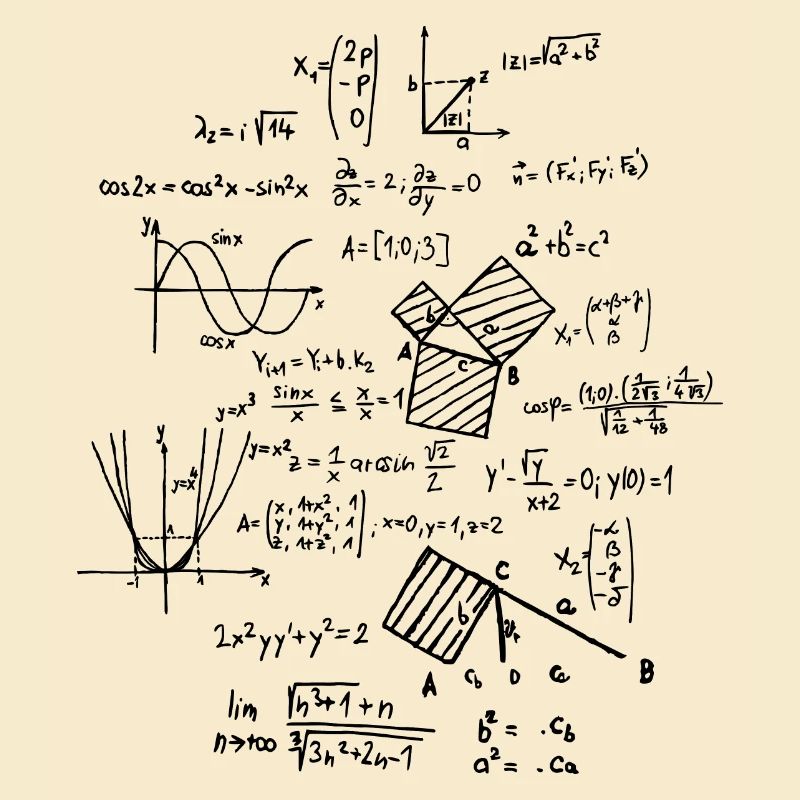 X₁=(2p -p 0)
b z |z| a
|z|=√a²+b²
λ₂=i√14
cos2x=cos²x-sin²x
∂z/∂x=2;∂z/∂y=0
n⃗=(F'x;F'y;F'z)
y sinx cosx x
A=[1;0;3]
a²+b²=c²
b a A c B
X₁=(α+β+γ α β)
Yᵢ₊₁=Yᵢ+b.K₂
y=x³
sinx/x ≤ x/x=1
cosφ=(1;0).(1/2√3;1/4√3)/√1/12+1/48
y y=x² y=x⁴ 1 -1 1 x
z=1/x arcsin √2/2
y'-√y/x+2=0; y(0)=1
A=(x, 1+x², 1 y, 1+y², 1 z, 1+z², 1); x=0,y=1,z=2
X₂=(-α β -γ -δ)
C
b a
A D B
2x²yy'+y²=2
lim n→+∞ √n³+1+n/³√3n²+2n-1
b²= .cb
a²= .ca